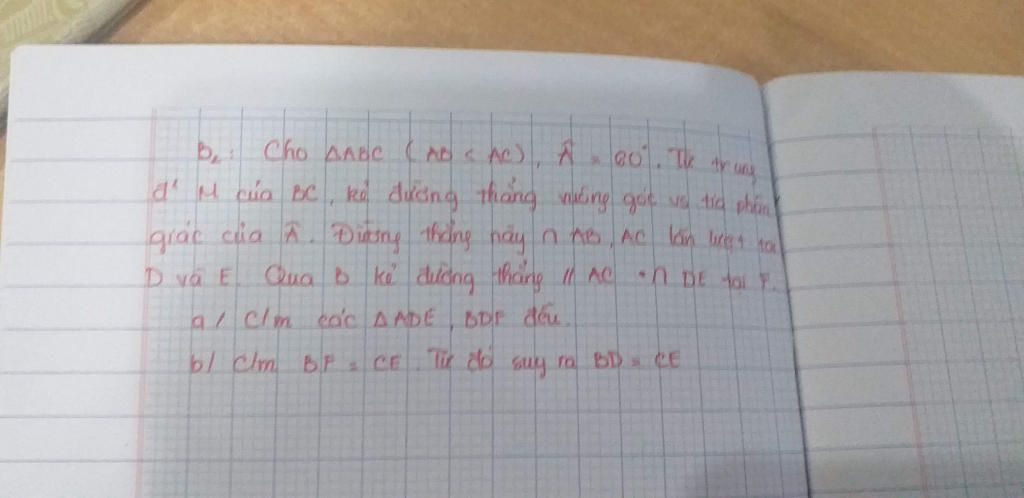 B₂: Cho ΔABC (AB < AC), Â = 60°. Từ trung
đ' M của BC, kẻ đường thẳng vuông góc vs tia phân
giác của Â. Đường thẳng này ∩ AB, AC lần lượt tại
D và E. Qua B kẻ đường thẳng // AC ∩ DE tại F.
a/ C/m các ΔADE, BDF đều.
b/ C/m BF = CE. Từ đó suy ra BD = CE